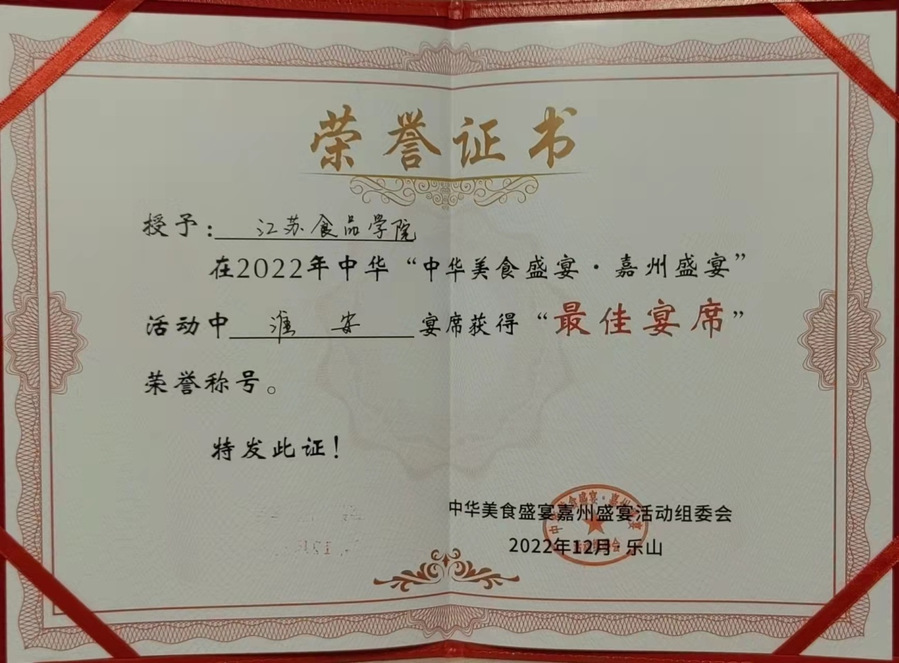 荣誉证书
授予：江苏食品学院
在2022年中华“中华美食盛宴·嘉州盛宴”
活动中 淮安 宴席获得“最佳宴席”
荣誉称号。
特发此证！
中华美食盛宴嘉州盛宴活动组委会
2022年12月·乐山